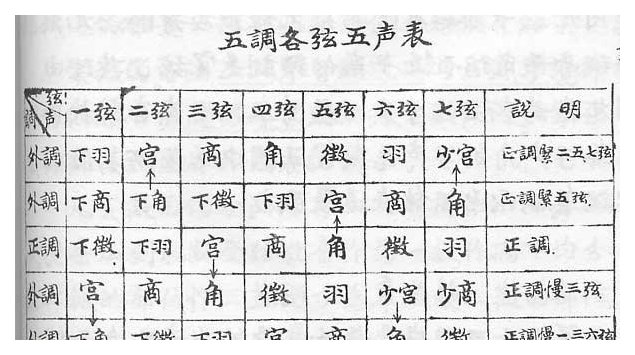 五調各弦五声表
調 声 弦 一弦 二弦 三弦 四弦 五弦 六弦 七弦 說明
外調 下羽 宮 商 角 徵 羽 少宮 正調緊二五七弦
外調 下商 下角 下徵 下羽 宮 商 角 正調緊五弦
正調 下徵 下羽 宮 商 角 徵 羽 正調
外調 宮 商 角 徵 羽 少宮 少商 正調慢三弦
外調 下角 下徵 下羽 宮 商 角 徵 正調慢一三六弦